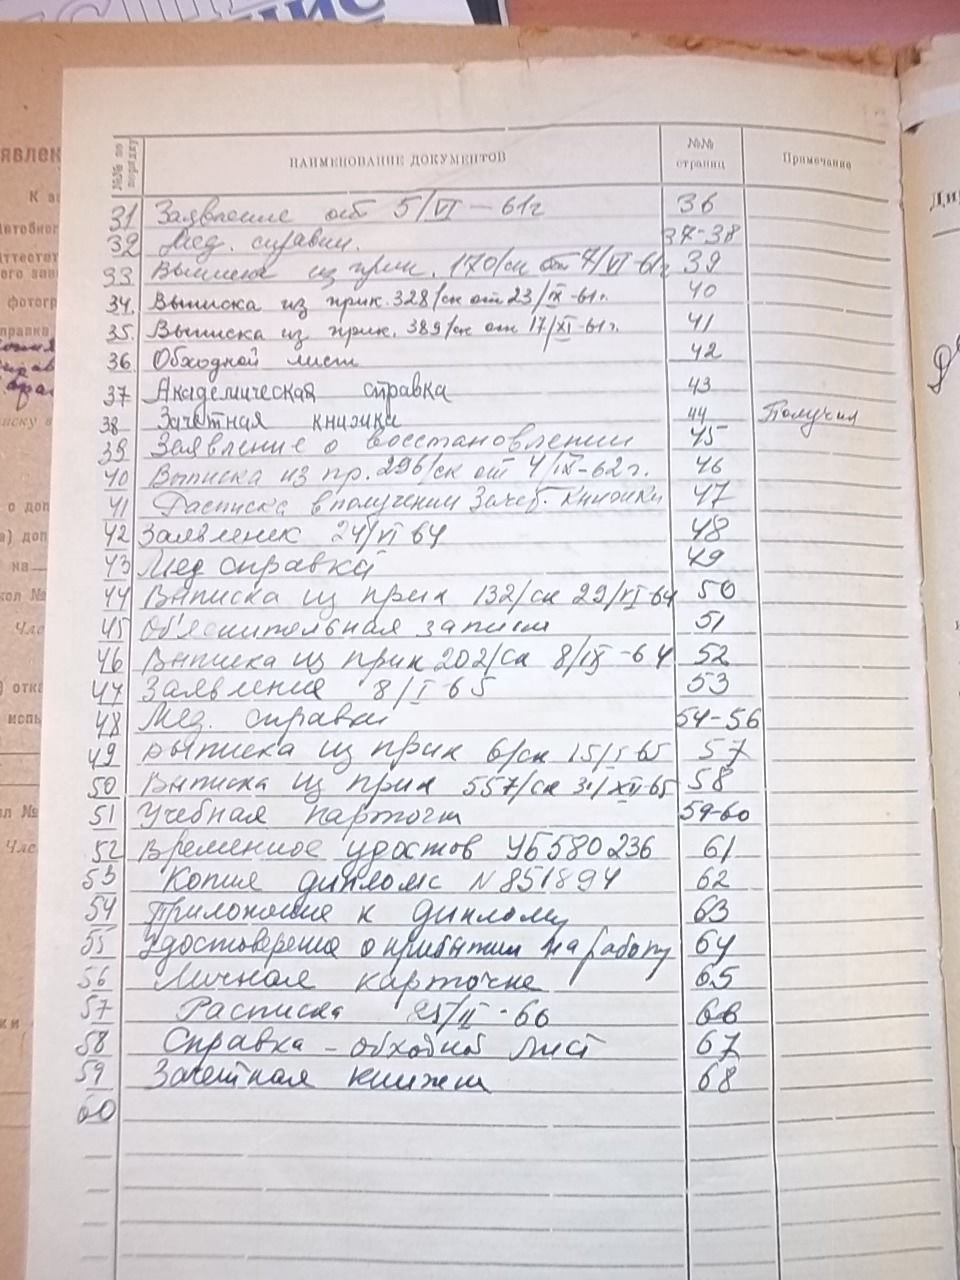 №№ по порядку | НАИМЕНОВАНИЕ ДОКУМЕНТОВ | №№ страниц | Примечание
31 Заявление от 5/VI – 61г 36
32 Мед. справки. 37-38
33 Выписка из прик. 170/ск от 7/VI-61г 39
34. Выписка из прик. 328/ск от 23/IX-61г. 40
35. Выписка из прик. 389/ск от 17/XI-61г. 41
36 Обходной лист 42
37 Академическая справка 43
38 Зачетная книжка 44 Получил
39 Заявление о восстановлении 45
40 Выписка из пр. 296/ск от 4/IX-62г. 46
41 Расписка в получении Зачет. Книжки 47
42 Заявление 24/VI 64 48
43 Мед справка 49
44 Выписка из прик 132/ск 29/VI-64 50
45 Об'яснительная записка 51
46 Выписка из прик 202/ск 8/IX-64 52
47 Заявление 8/I 65 53
48 Мед. справки 54-56
49 Выписка из прик 6/ск 15/I 65 57
50 Выписка из прик 557/ск 31/XII-65 58
51 Учебная карточка 59-60
52 Временное удостов УБ580236 61
53 Копия диплома N851894 62
54 Приложение к диплому 63
55 Удостоверение о прибытии на работу 64
56 Личная карточка 65
57 Расписка 25/II-66 66
58 Справка – обходной лист 67
59 Зачетная книжка 68
60